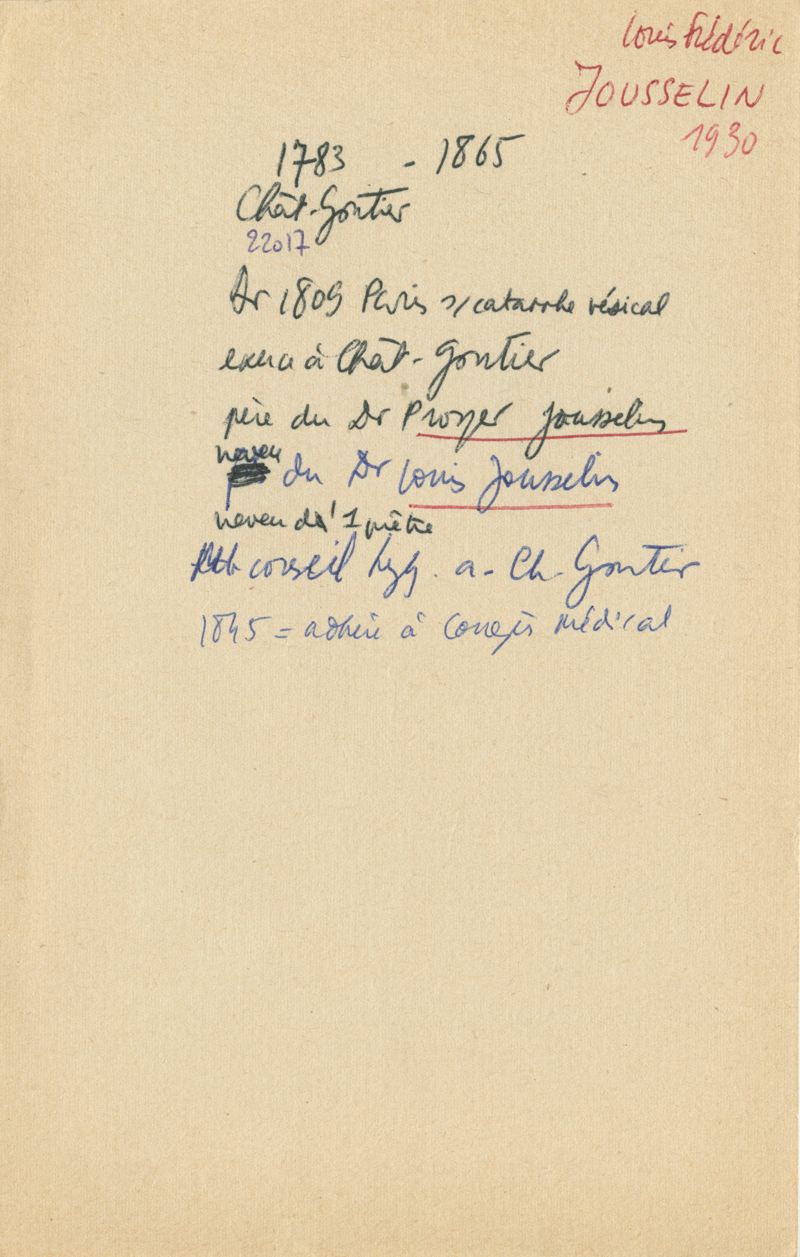 Louis Frédéric
JOUSSELIN
1930
1783 - 1865
Chât-Gontier
22017
Dr 1809 Paris s/catarrhe vésical
exerce à Chât-Gontier
père du Dr Prosper Jousselin
neveu du Dr Louis Jousselin
neveu d' 1 prêtre
conseil hyg. a- Ch-Gontier
1845 = adhère à Congrès médical